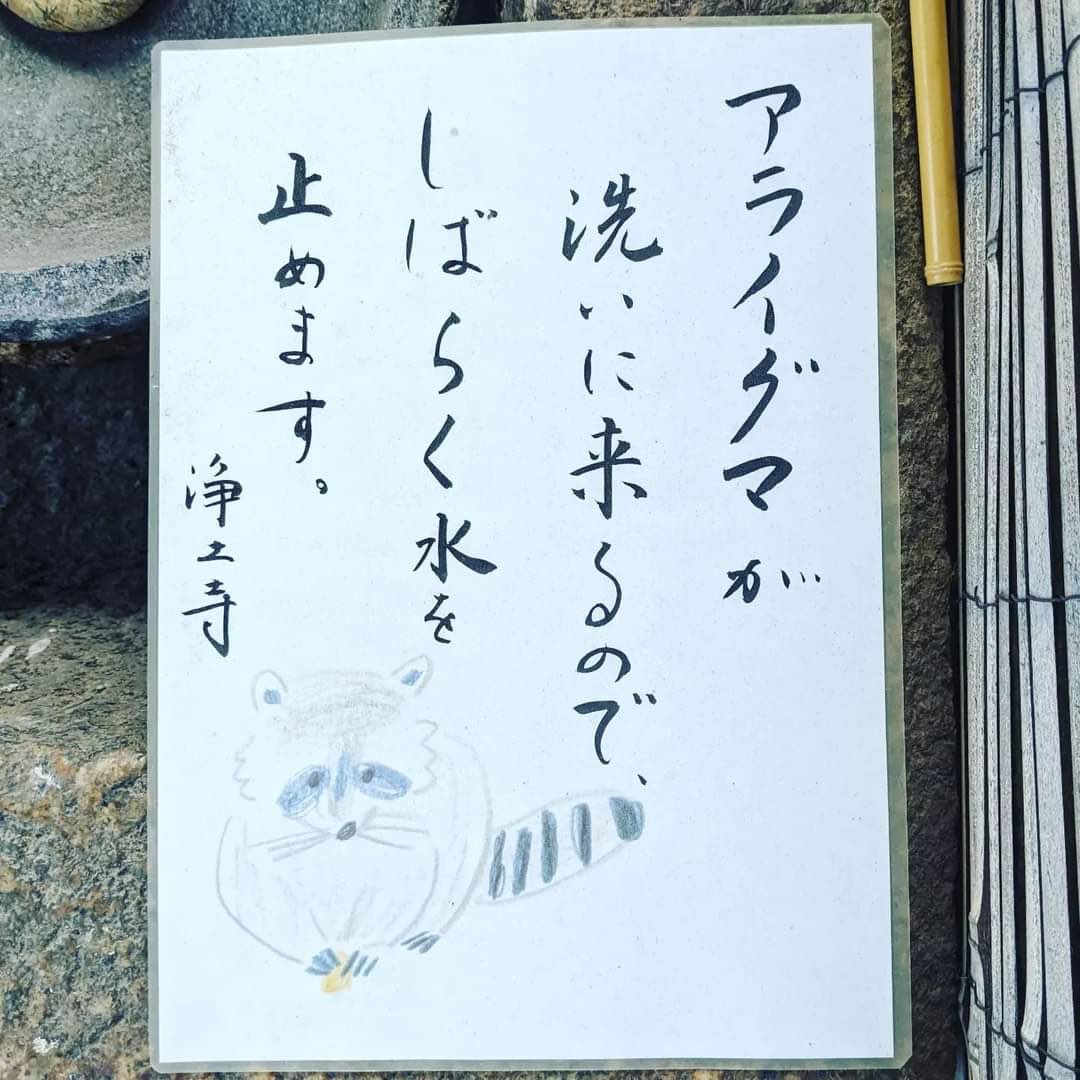 アライグマが
洗いに来るので、
しばらく水を
止めます。
浄土寺